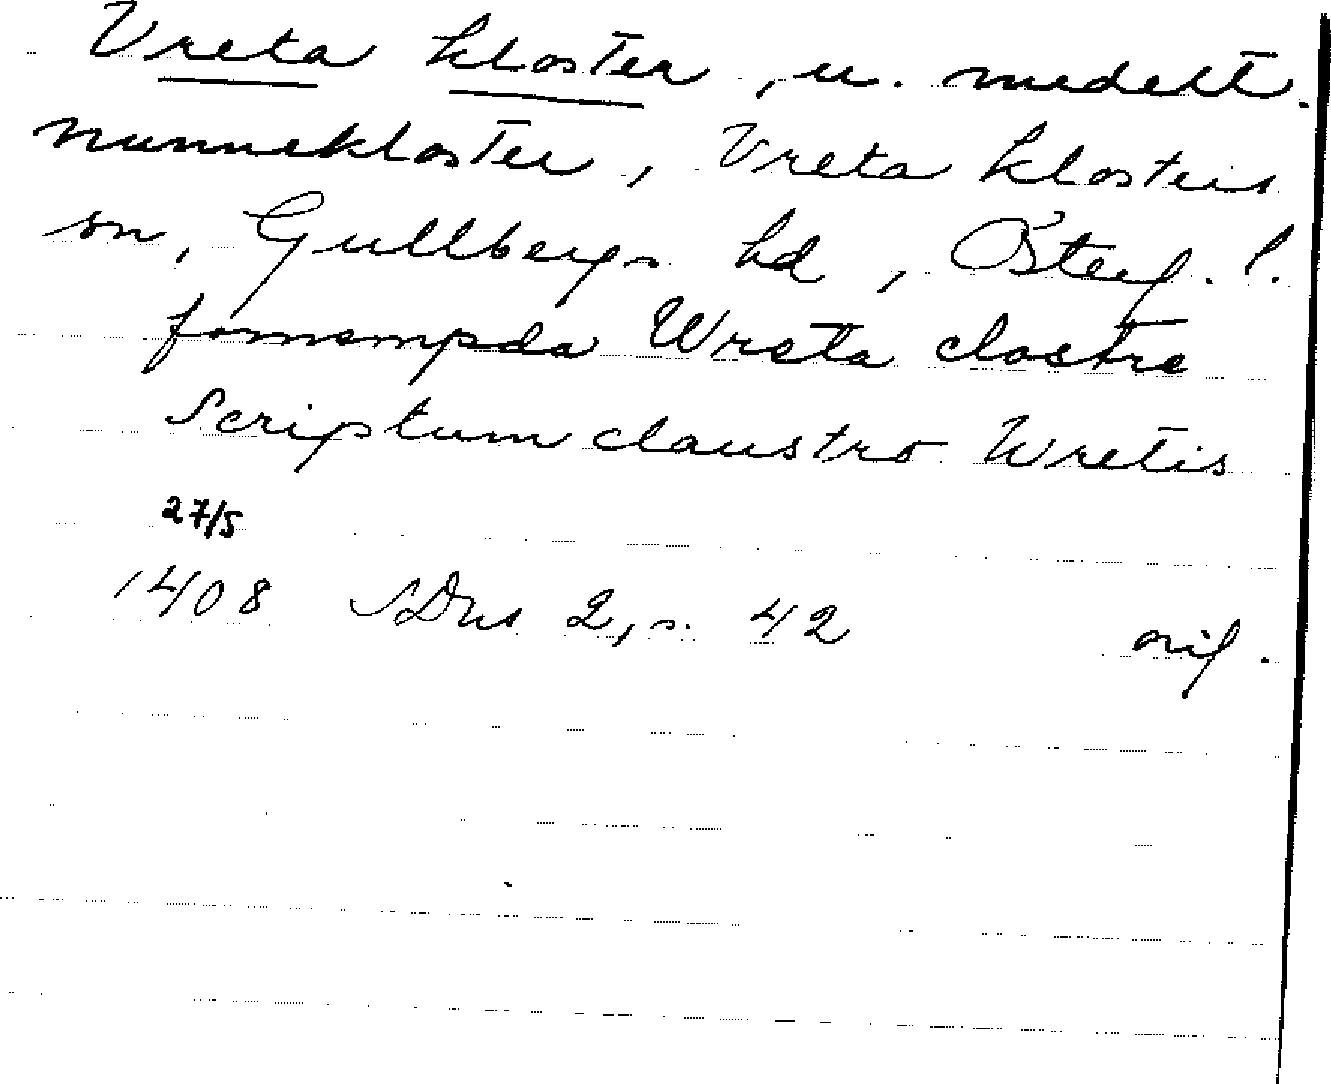 Vreta kloster, u. medelt.
nunnekloster, Vreta klosters
sn, Gullbergs hd, Österg. l.
fornempda Wreta clostre
Scriptum claustro Wretis
27/5
1408 SDns 2, s. 42 orig.